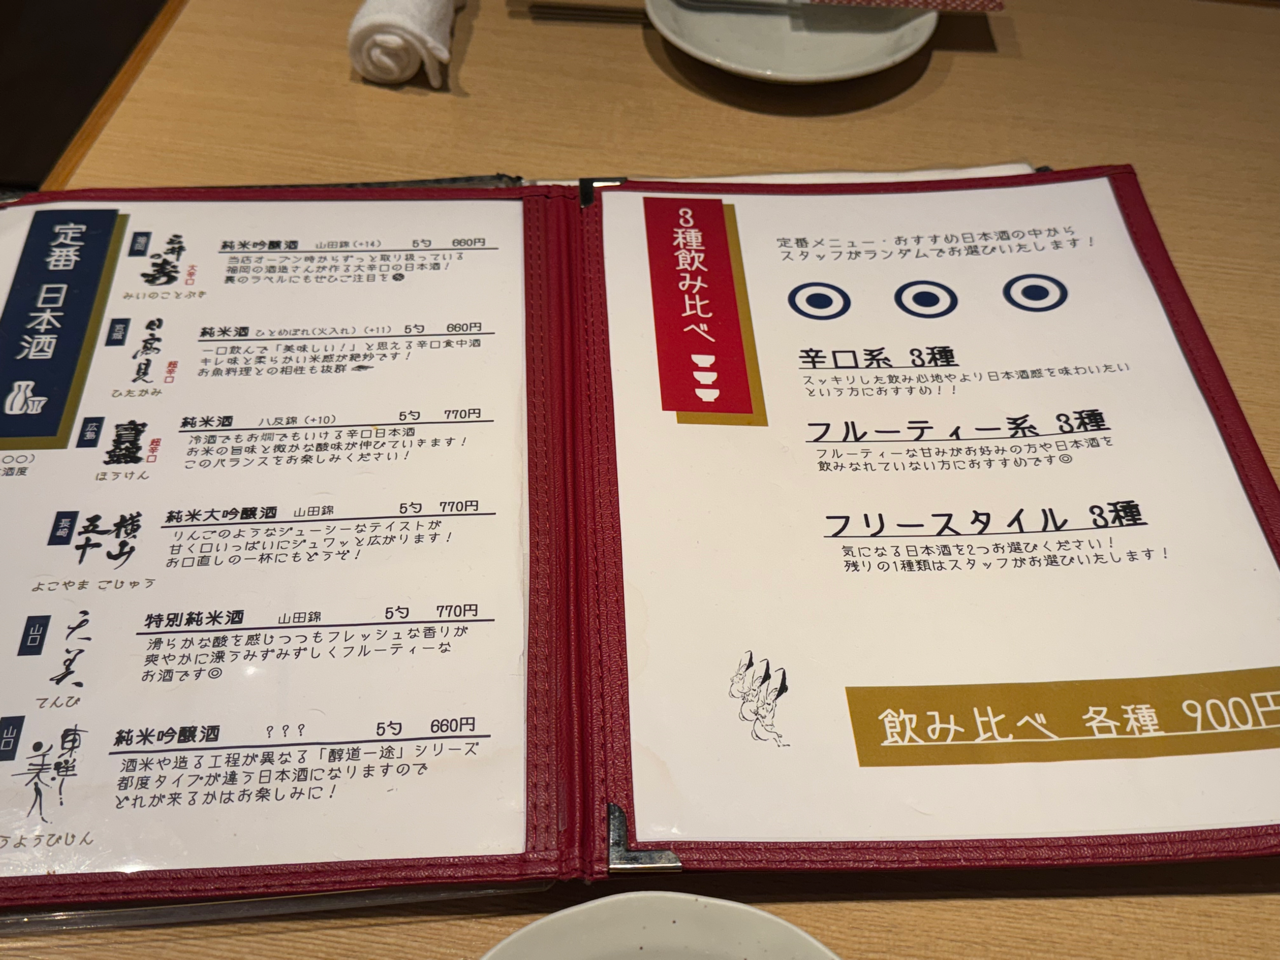 定番 日本酒
○○）
酒度
福岡
三井の寿
大辛口
みいのことぶき
純米吟醸酒 山田錦（+14） 5勺 660円
当店オープン時からずっと取り扱っている
福岡の酒造さんが作る大辛口の日本酒！
裏のラベルにもぜひご注目を
宮城
日高見
超辛口
ひたかみ
純米酒 ひとめぼれ（火入れ）（+11） 5勺 660円
一口飲んで「美味しい！」と思える辛口食中酒
キレ味と柔らかい米感が絶妙です！
お魚料理との相性も抜群
広島
寶剱
超辛口
ほうけん
純米酒 八反錦（+10） 5勺 770円
冷酒でもお燗でもいける辛口日本酒
お米の旨味と微かな酸味が伸びていきます！
このバランスをお楽しみください！
長崎
横山五十
よこやま ごじゅう
純米大吟醸酒 山田錦 5勺 770円
りんごのようなジューシーなテイストが
甘く口いっぱいにジュワッと広がります！
お口直しの一杯にもどうぞ！
山口
天美
てんび
特別純米酒 山田錦 5勺 770円
滑らかな酸を感じつつもフレッシュな香りが
爽やかに漂うみずみずしくフルーティーな
お酒です◎
山口
東洋美人
うようびじん
純米吟醸酒 ？？？ 5勺 660円
酒米や造る工程が異なる「醇道一途」シリーズ
都度タイプが違う日本酒になりますので
どれが来るかはお楽しみに！
3種飲み比べ
定番メニュー・おすすめ日本酒の中から
スタッフがランダムでお選びいたします！
辛口系 3種
スッキリした飲み心地やより日本酒感を味わいたい
という方におすすめ！！
フルーティー系 3種
フルーティーな甘みがお好みの方や日本酒を
飲みなれていない方におすすめです◎
フリースタイル 3種
気になる日本酒を2つお選びください！
残りの1種類はスタッフがお選びいたします！
飲み比べ 各種 900円